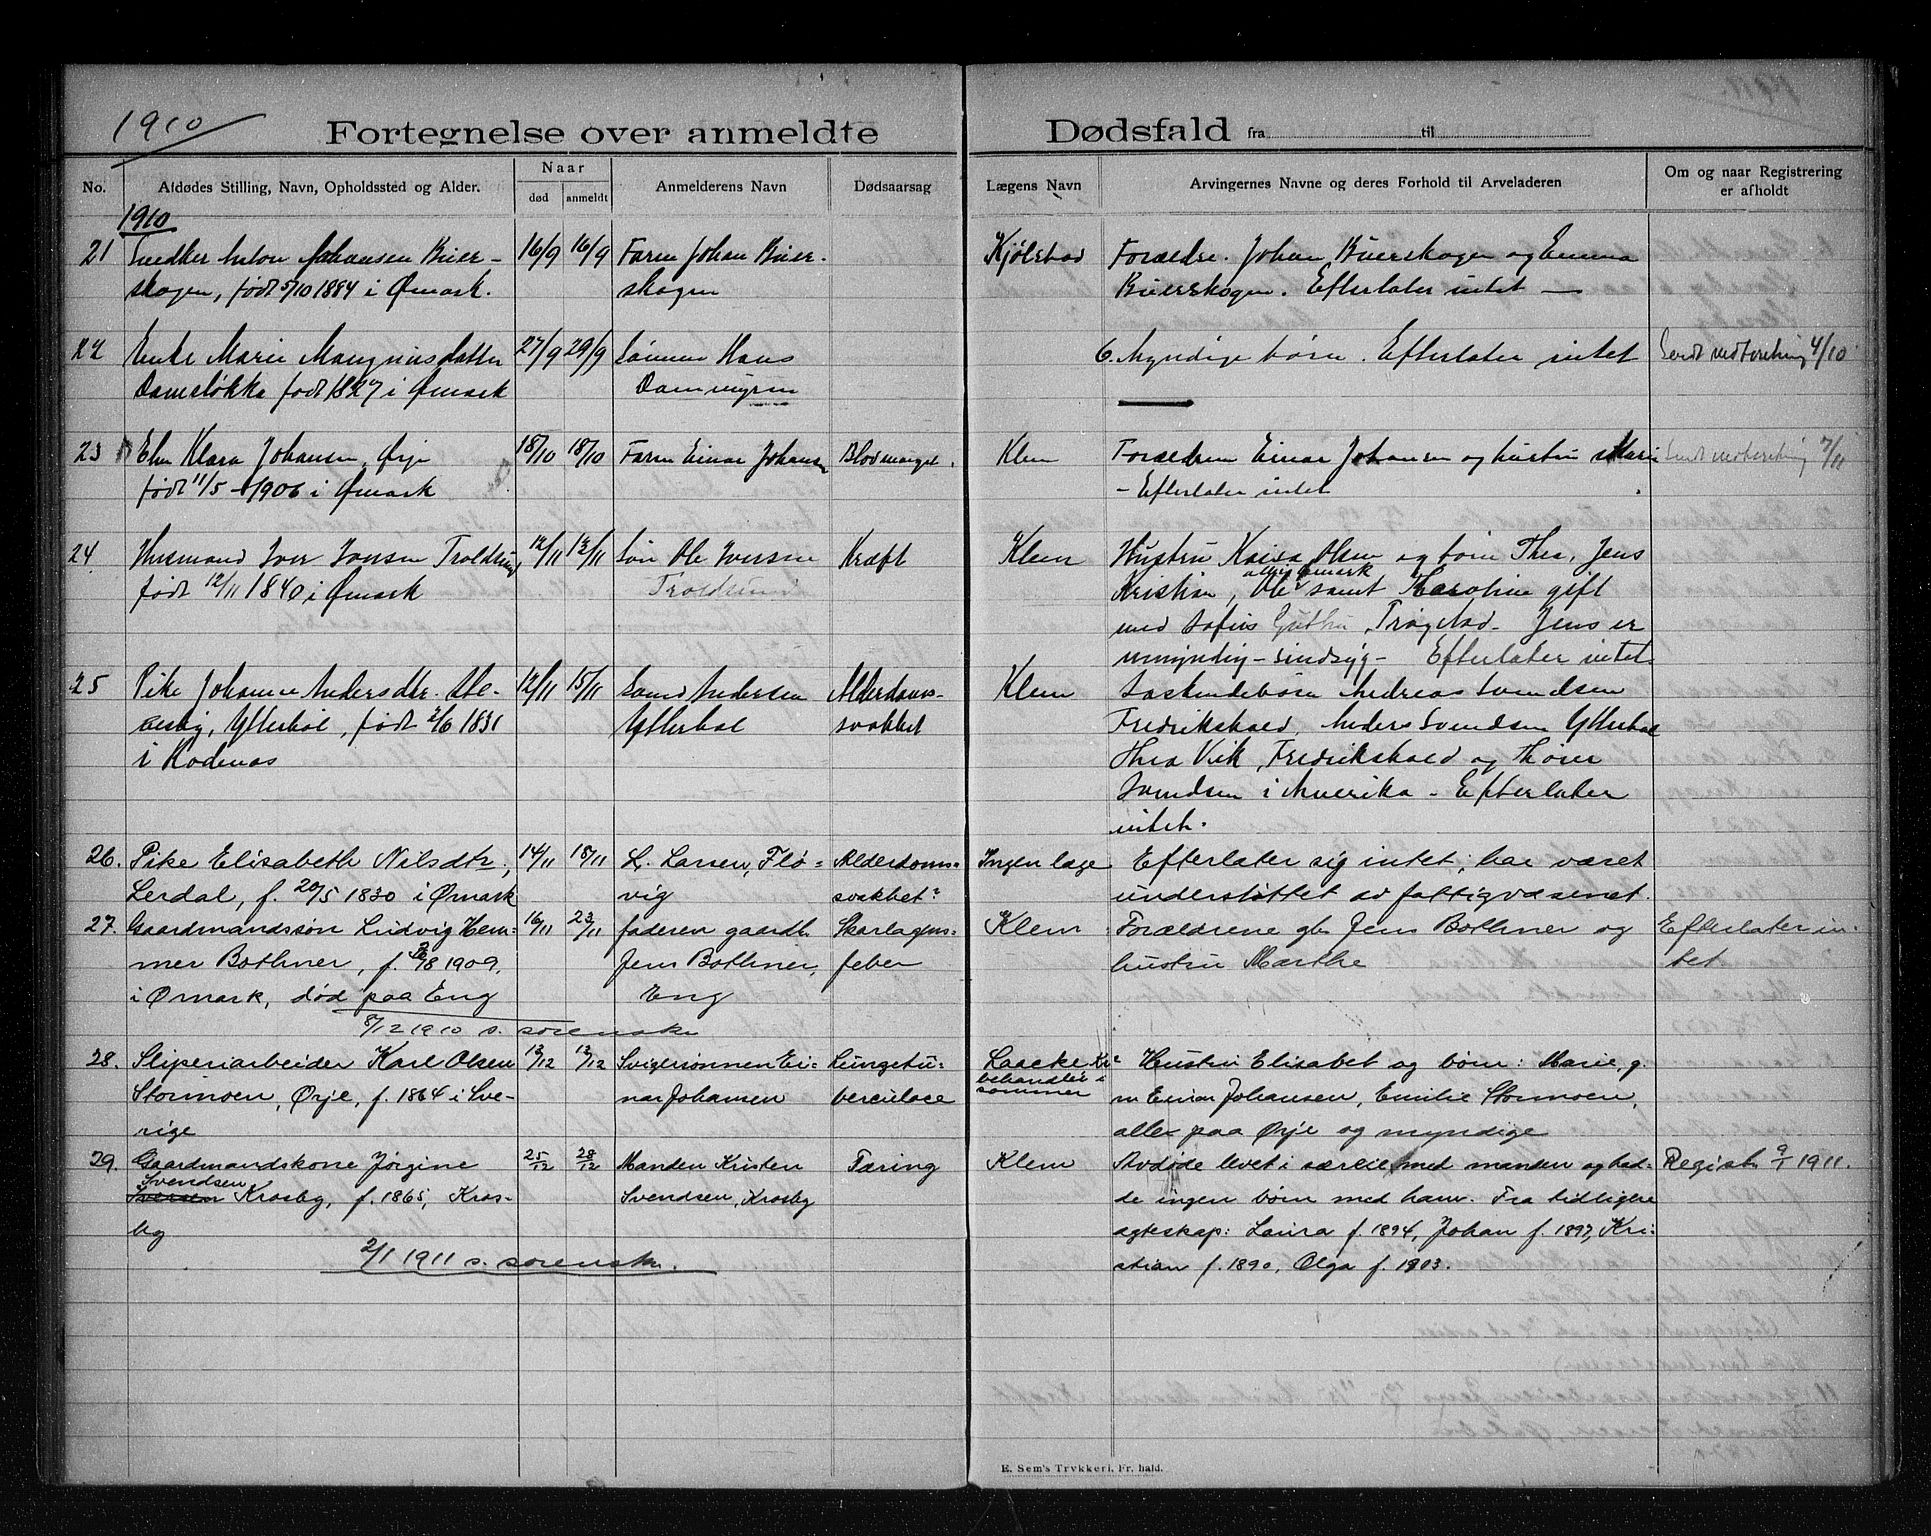 1910
Fortegnelse over anmeldte Dødsfald fra til
No. Afdødes Stilling, Navn, Opholdssted og Alder. Naar død anmeldt Anmelderens Navn Dødsaarsag Lægens Navn Arvingernes Navne og deres Forhold til Arveladeren Om og naar Registrering er afholdt
1910
21 Snedker Anton Johansen Buer- 16/9 16/9 Faren Johan Buer- Kjølstad Forældre. Johan Buerskogen og Emma
skogen, født 5/10 1884 i Ømark. skogen Buerskogen. Efterlater intet —
22 Enke Marie Mangnusdatter 27/9 29/9 Sønnen Hans 6. myndige børn. Efterlater intet Sendt indberetning 4/10
Damsløkka født 1827 i Ømark Dammyren
23 Klara Johansen, Ørje 18/10 18/10 Faren Einar Johansen Blodmangel. Klem Forældren Einar Johansen og hustru Marie Sendt indberetning 7/11
født 11/5 - 1906 i Ømark - Efterlater intet
24 Husmand Iver Jensen Troldsund 12/11 13/11 Søn Ole Iversen Kræft Klem Hustru Kaisa Olsen og børn Thea, Jens
født 12/11 1840 i Ømark Troldsund Kristian, Ole alle i Ømark samt Karoline gift
med Sofus Trøgstad. Jens er
umyndig - sindsyg - Efterlater intet.
25 Pike Johanne Andersdtr. 12/11 15/11 Svend Andersen Alderdoms- Klem Søskendebørn Andreas Svendsen
Ytterbøl, født 2/6 1831 Ytterbøl svakhet Fredrikshald, Anders Svendsen Ytterbøl
i Rødenes Thea Vik, Fredrikshald og Thorer
Svendsen i Amerika - Efterlater
intet.
26. Pike Elisabeth Nilsdtr, 14/11 18/11 L. Larsen, Flø- Alderdoms- Ingen læge Efterlater sig intet; har været
Lerdal, f. 20/5 1830 i Ømark vig svakhet? understøttet av fattigvæsenet.
27. Gaardmandssøn Ludvig Hem- 16/11 23/11 faderen gaardb. Skarlagens- Klem Forældrene gbr Jens Bothner og Efterlater in-
mer Bothner, f. 1909, Jens Bothner, feber hustru Marthe tet
i Ømark, død paa Eng Eng
8/12 1910 s. sorensk.
28. Sliperiarbeider Karl Olsen 13/12 13/12 Svigersønnen Ei- Lungetu- Laacke behandler i sommer Hustru Elisabet og børn: Marie, g.
Stormoen, Ørje, f. 1864 i Sve- nar Johansen berculose m Einar Johansen, Emilie Stormoen,
rige alle paa Ørje og myndige
29. Gaardmandskone Jørgine 25/12 28/12 Manden Kristen Tæring Klem Avdøde levet i særeie med manden og had- Registr. 9/1 1911.
Svendsen
Iversen Krosby, f. 1865, Kros- Svendsen, Krosby de ingen børn med ham. Fra tidligere
by egteskap: Laura f. 1894, Johan f. 1897, Kri-
2/1 1911 s. sorensk. stian f. 1890, Olga f. 1903.
E. Sem's Trykkeri, Fr. hald.